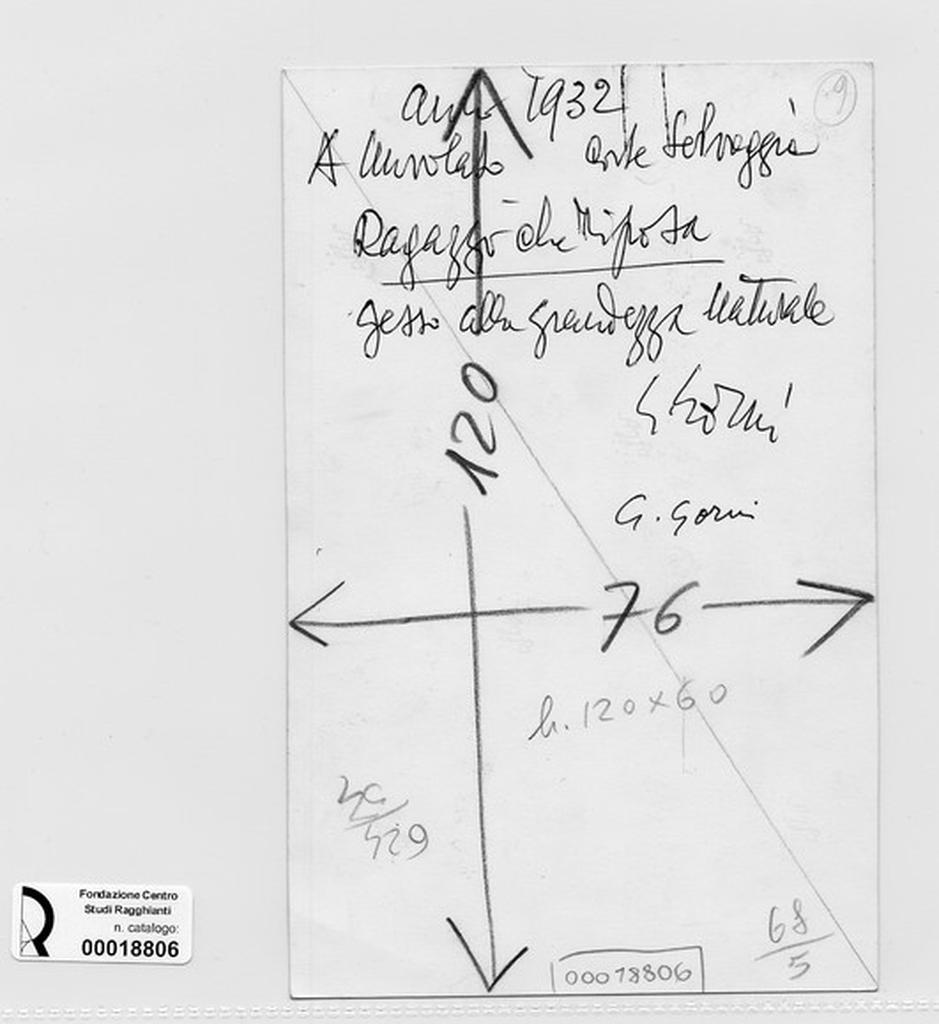 9
anno 1932
A Nuvolato
Ragazzo che riposa
gesso alla grandezza naturale
G Gorni
120
G. Gorni
76
h. 120 x 60
68
5
00018806
Fondazione Centro
Studi Ragghianti
n. catalogo:
00018806